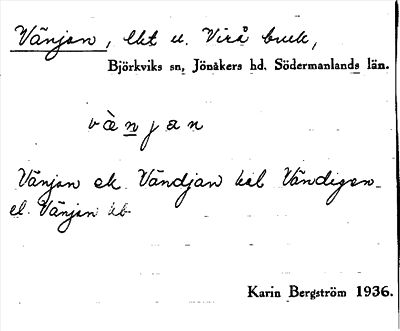 Vänjan, lht u. Virå bruk,
Björkviks sn, Jönåkers hd, Södermanlands län.
vànjan
Vänjan ek Vändjan kal Vändigen
el. Vänjan hb
Karin Bergström 1936.